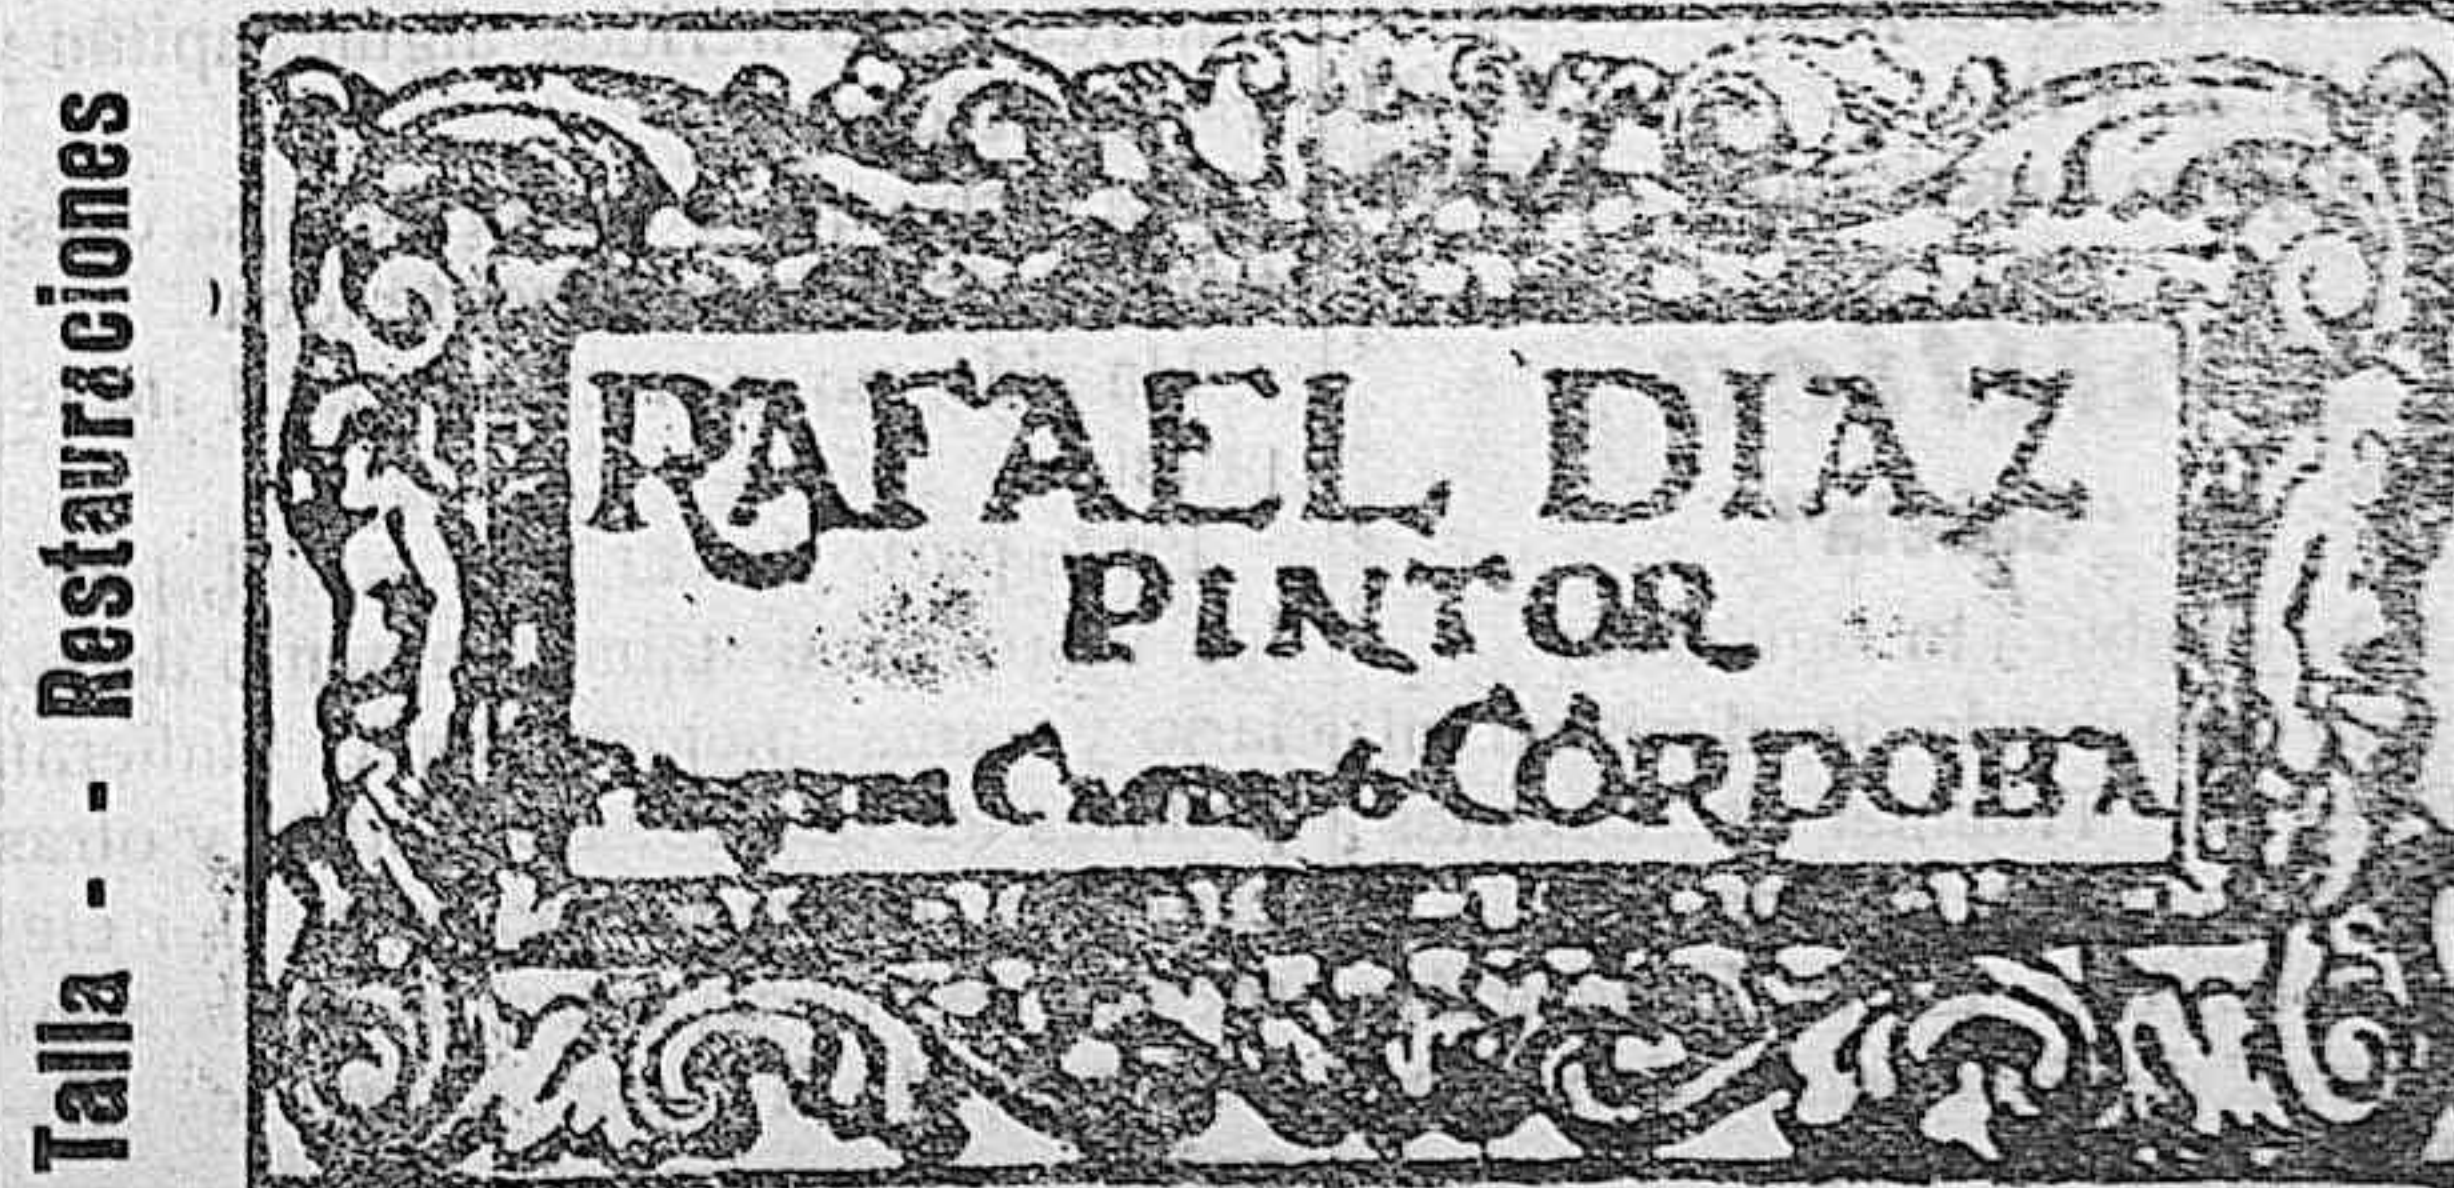 Talla - - Restauraciones
RAFAEL DIAZ
PINTOR
CÓRDOBA